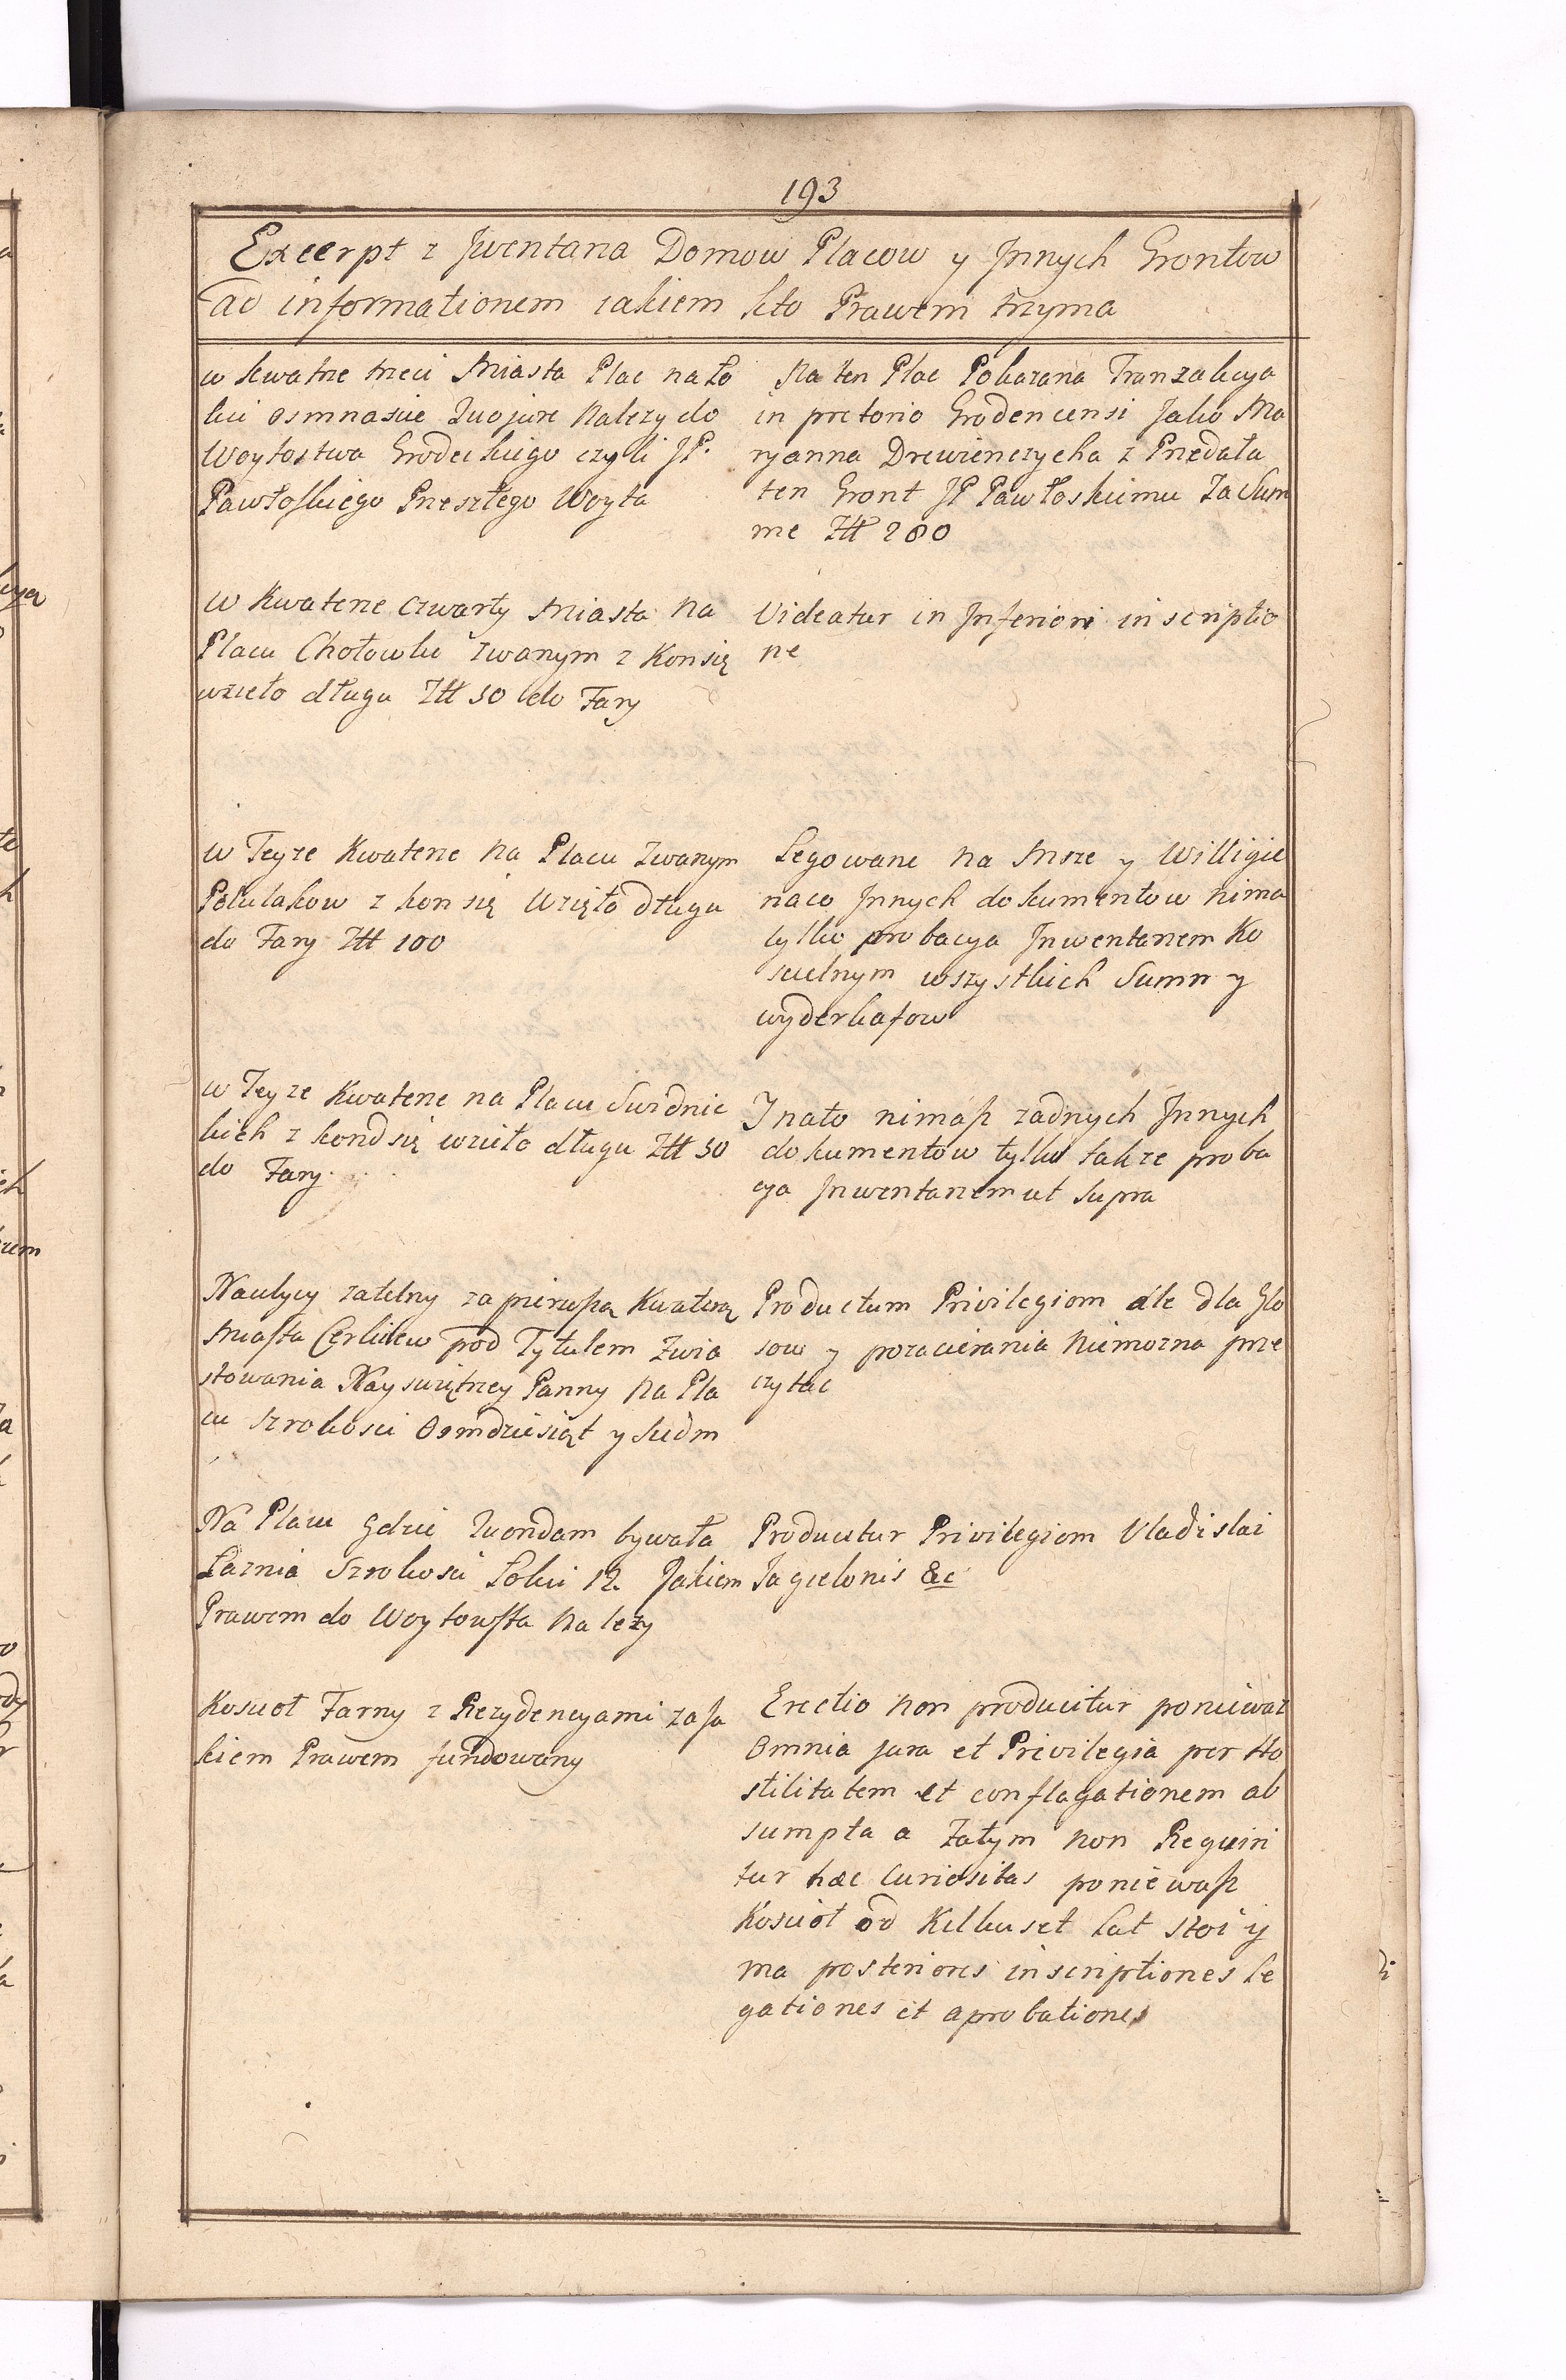 193
Excerpt z Jwentarza Domow Placow y Jnnych Grontow
ad informationem iakiem kto Prawem trzyma
w kwatrze trzeci Miasta Plac na Ło
kci osmnascie Quo jure Nalezy do
Woytostwa Grodeckiego czyli JP.
Pawłoskiego Przeszłego Woyta
Na ten Plac Pokazana Tranzakcya
in pretorio Grodencensi Jako Ma
ryanna Drewienczycha z Przedała
ten Gront JP Pawłoskiemu Za Sum
me Złł 280
W Kwaterze czwarty Miasta Na
Placu Chołowki zwanym z Konsię
wzieło długu Złł 50 do Fary
Videatur in Jnferiori inscriptio
ne
W Teyze Kwaterze Na Placu Zwanym
Polulakow z kon się Wzięło długu
do Fary Złł 100
Legowane na Msze y Willigie
naco Jnnych dokumentow nima
tylko probacya Jnwentarzem Ko
scielnym wszystkich Summ y
wyderkafow
W Teyze Kwaterze na Placu Swidnic
kich z kond się wzieło długu Złł 50
do Fary
J nato nimasz zadnych Jnnych
dokumentow tylko takze proba
cya Jnwentarzem ut Supra
Naulycy zatelny za pierwszą Kwaterą
Miasta Cerkiew pod Tytulem Zwia
stowania Nayswiętrzey Panny Na Pla
cu szrokosci Osmdziesiąt y siedm
Productum Privilegiom ale dla Glo
sow y pozacierania Niemozna prze
czytac
Na Placu gdzie Quondam bywała
Łaznia Szrokosci Łokci 12. Jakiem
Prawem do Woytowsta Nalezy
Producitur Privilegiom Vladislai
Jagielonis &c
Koscioł Farny z Rezydencyami za Ja
kiem Prawem fundowany
Erectio non producitur poniewaz
Omnia jura et Privilegia per Ho
stilitatem et conflagationem ab
sumpta a Zatym non Requiri
tur hæc Curiositas poniewasz
Kosciół od Kilkuset Lat stoi y
ma posteriores inscriptiones Le
gationes et aprobationes